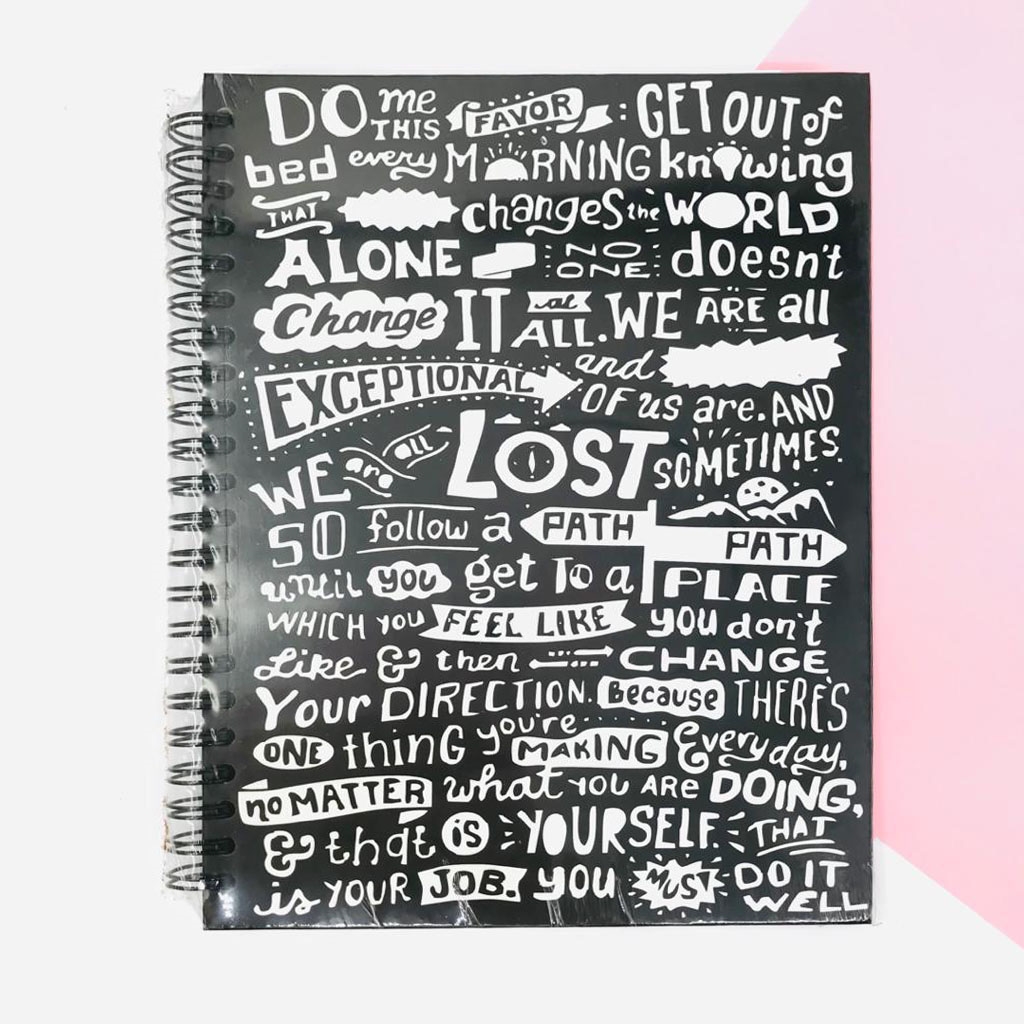 DO me THIS FAVOR : GET OUT of
bed every MORNING knowing
THAT changes the WORLD
ALONE NO ONE doesn't
Change IT at ALL. WE ARE all
EXCEPTIONAL and
OF us are. AND
WE are all LOST SOMETIMES.
SO follow a PATH PATH
until YOU get To a PLACE
WHICH YOU FEEL LIKE you don't
Like & then CHANGE
Your DIRECTION. Because THERE'S
ONE thing you're MAKING Everyday,
no MATTER what YOU ARE DOING,
& that is YOURSELF. THAT
is YOUR JOB. you MUST DO IT WELL